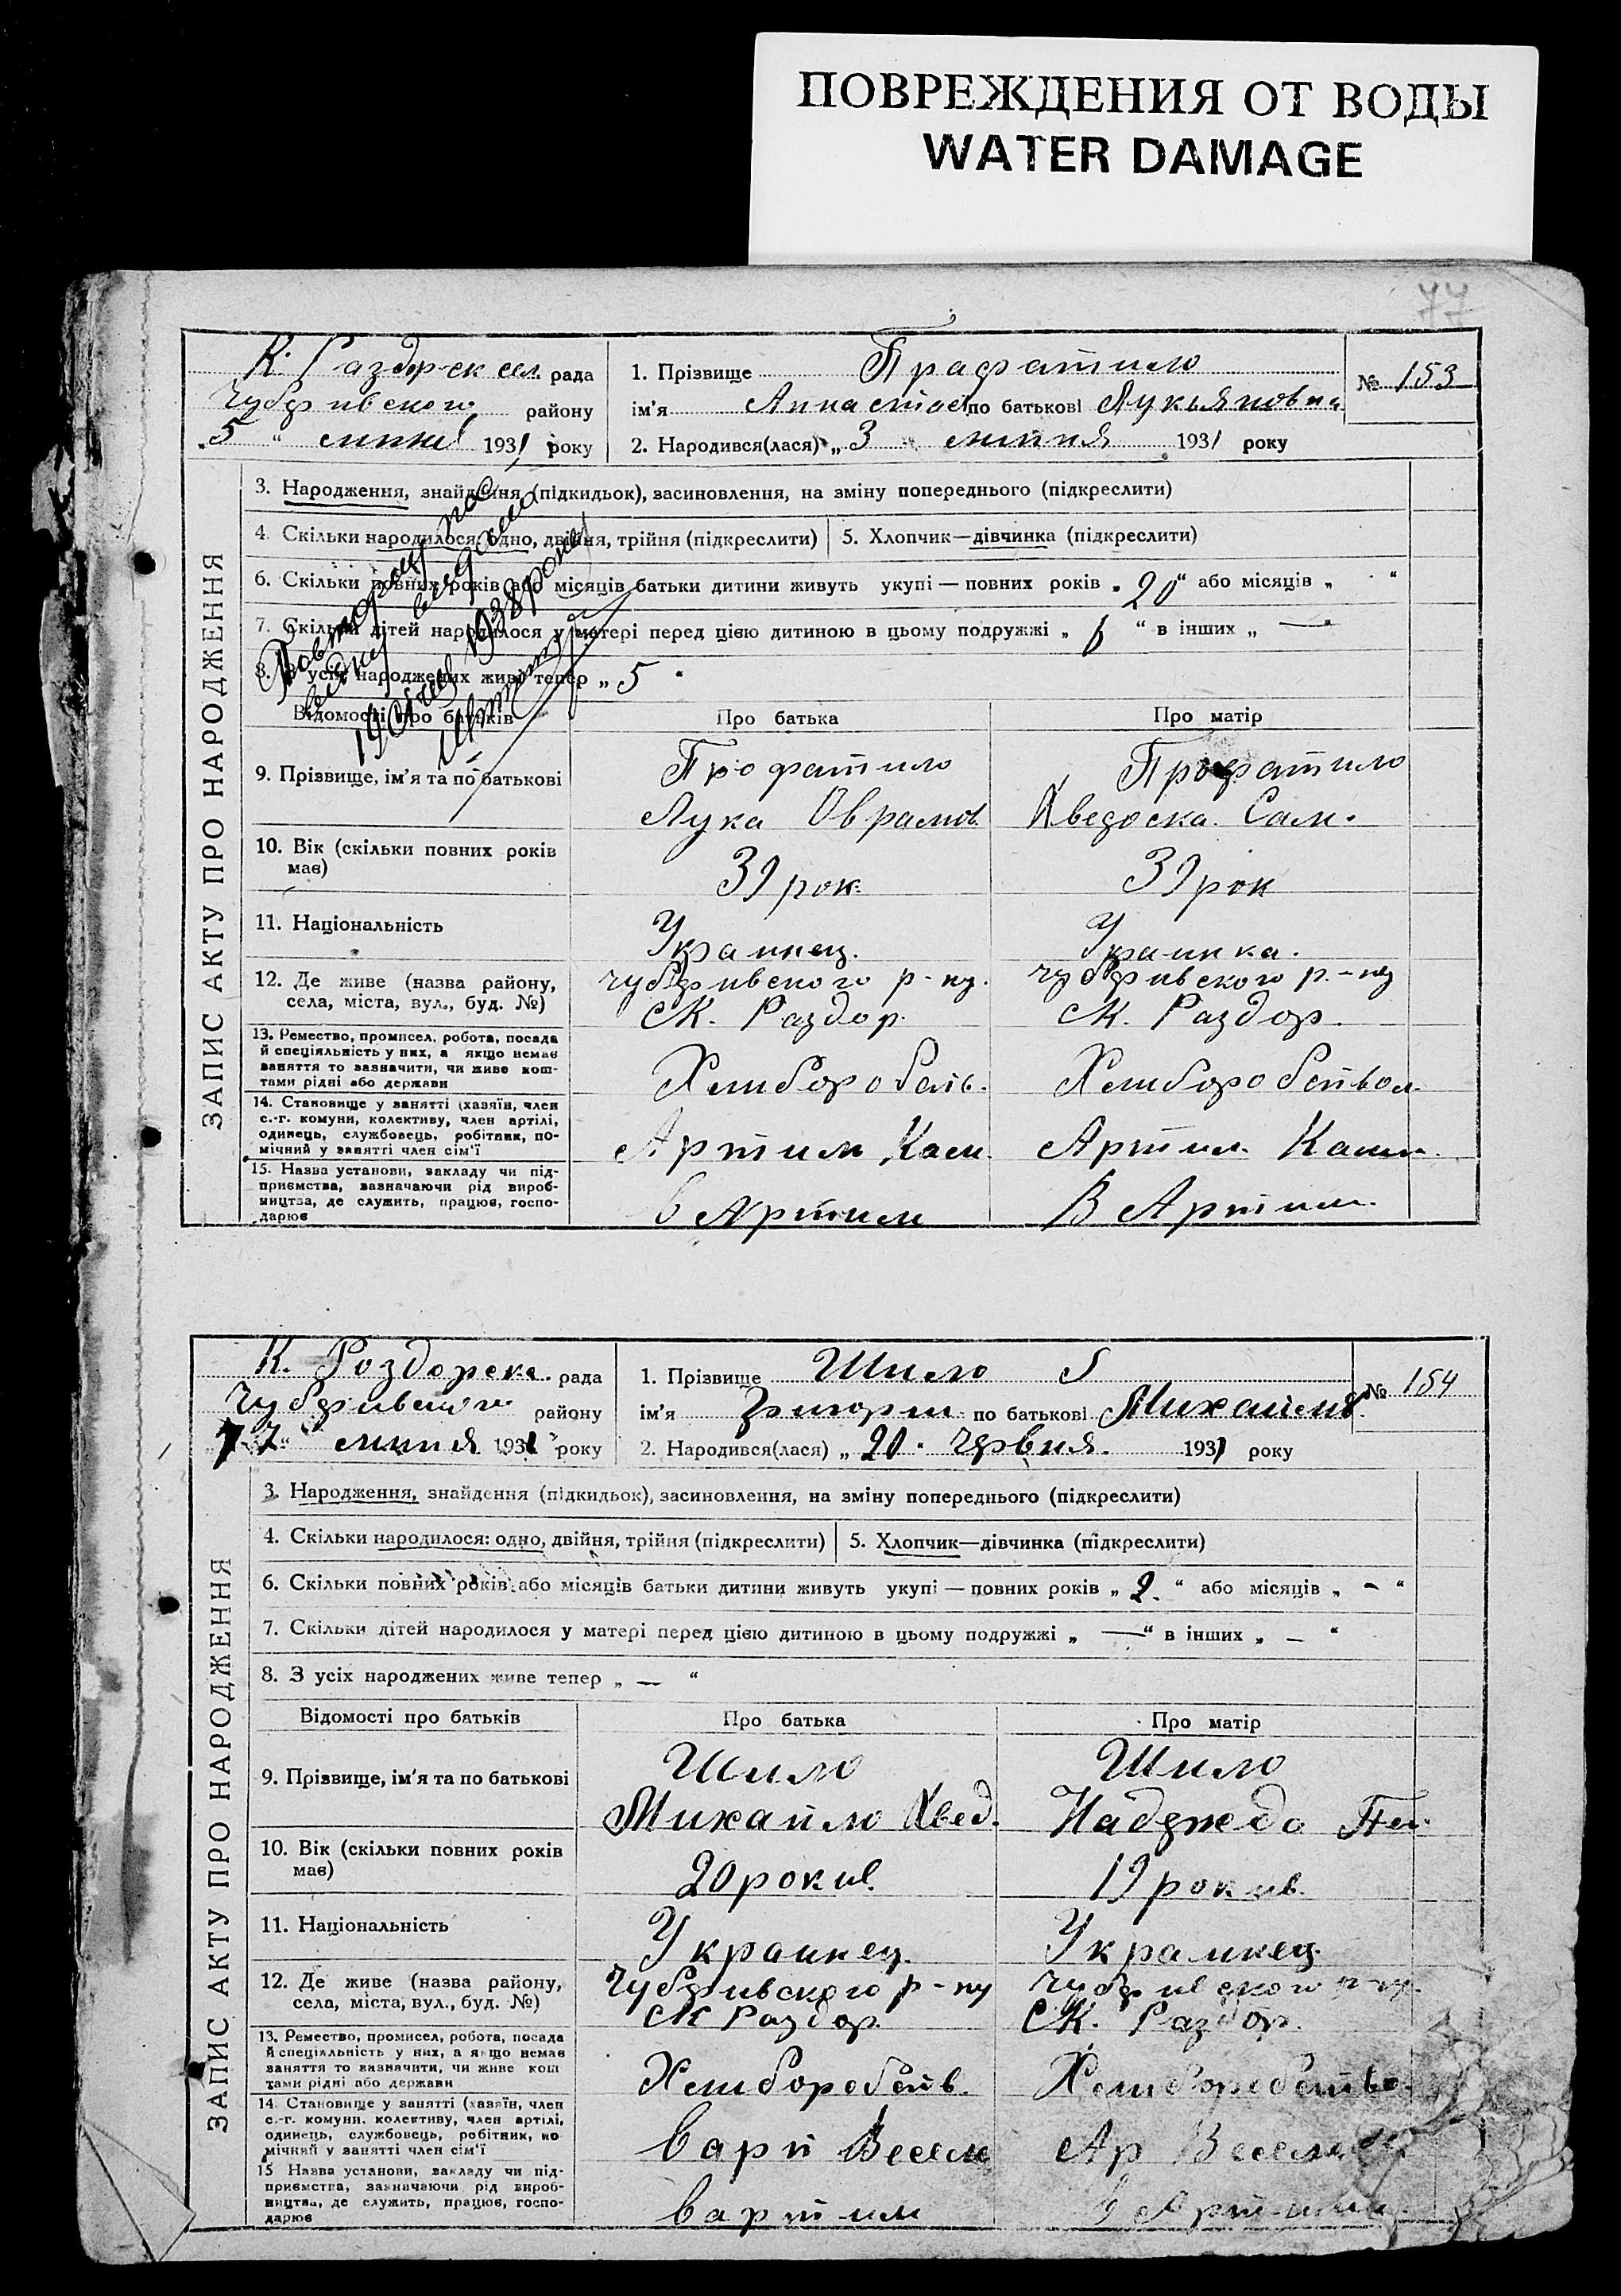 ПОВРЕЖДЕНИЯ ОТ ВОДЫ
WATER DAMAGE
77
К. Раздорск сел. рада
Чубарівского району
„5“ липня 1931 року
1. Прізвище Прафатило
ім'я Анастас по батькові Лукьяновна
2. Народився(лася) „3“ липня 1931 року
№ 153
ЗАПИС АКТУ ПРО НАРОДЖЕННЯ
3. Народження, знайдення (підкидьок), засиновлення, на зміну попереднього (підкреслити)
4. Скільки народилося: одно, двійня, трійня (підкреслити)
5. Хлопчик—дівчинка (підкреслити)
6. Скільки повних років або місяців батьки дитини живуть укупі — повних років „20“ або місяців „ “
7. Скільки дітей народилося у матері перед цією дитиною в цьому подружжі „6“ в інших „—“
8. З усіх народжених живе тепер „5“
Повторну
видано
1938 року
Відомості про батьків
Про батька
Про матір
9. Прізвище, ім'я та по батькові
Профатило
Лука Оврамов.
Профатило
Хведоска Сам.
10. Вік (скільки повних років має)
39 рок.
39 рок
11. Національність
Украинец.
Украинка.
12. Де живе (назва району, села, міста, вул., буд. №)
Чубарівского р-ну.
СК. Раздор.
Чубарівского р-ну
СК. Раздор.
13. Ремество, промисел, робота, посада й спеціяльність у них, а якщо немає заняття то зазначити, чи живе коштами рідні або держави
Хлиборобств.
Хлиборобством
14. Становище у занятті (хазяїн, член с.-г. комуни, колективу, член артілі, одинець, службовець, робітник, помічний у занятті член сім'ї
Артили
Артил.
15. Назва установи, закладу чи підприємства, зазначаючи рід виробництва, де служить, працює, господарює
в Артили
В Артили
К. Роздорска. рада
Чубарівского району
7 липня 1931 року
1. Прізвище Шило
ім'я Григори по батькові Михайлов
2. Народився(лася) „20“ червня. 1931 року
№ 154
ЗАПИС АКТУ ПРО НАРОДЖЕННЯ
3. Народження, знайдення (підкидьок), засиновлення, на зміну попереднього (підкреслити)
4. Скільки народилося: одно, двійня, трійня (підкреслити)
5. Хлопчик—дівчинка (підкреслити)
6. Скільки повних років або місяців батьки дитини живуть укупі — повних років „2.“ або місяців „-“
7. Скільки дітей народилося у матері перед цією дитиною в цьому подружжі „—“ в інших „—“
8. З усіх народжених живе тепер „—“
Відомості про батьків
Про батька
Про матір
9. Прізвище, ім'я та по батькові
Шило
Михайло Хвед.
Шило
Надежда
10. Вік (скільки повних років має)
20 років.
19 років.
11. Національність
Украинец.
Украинец.
12. Де живе (назва району, села, міста, вул., буд. №)
Чубарівского р-ну
СК Раздор.
Чубарівского р-ну.
СК. Раздор.
13. Ремество, промисел, робота, посада й спеціяльність у них, а якщо немає заняття то зазначити, чи живе коштами рідні або держави
Хлиборобств.
Хлиборобство
14. Становище у занятті (хазяїн, член с.-г. комуни, колективу, член артілі, одинець, службовець, робітник, помічний у занятті член сім'ї
в арт Весел
Ар Весел
15. Назва установи, закладу чи підприємства, зазначаючи рід виробництва, де служить, працює, господарює
в артили
в Артили